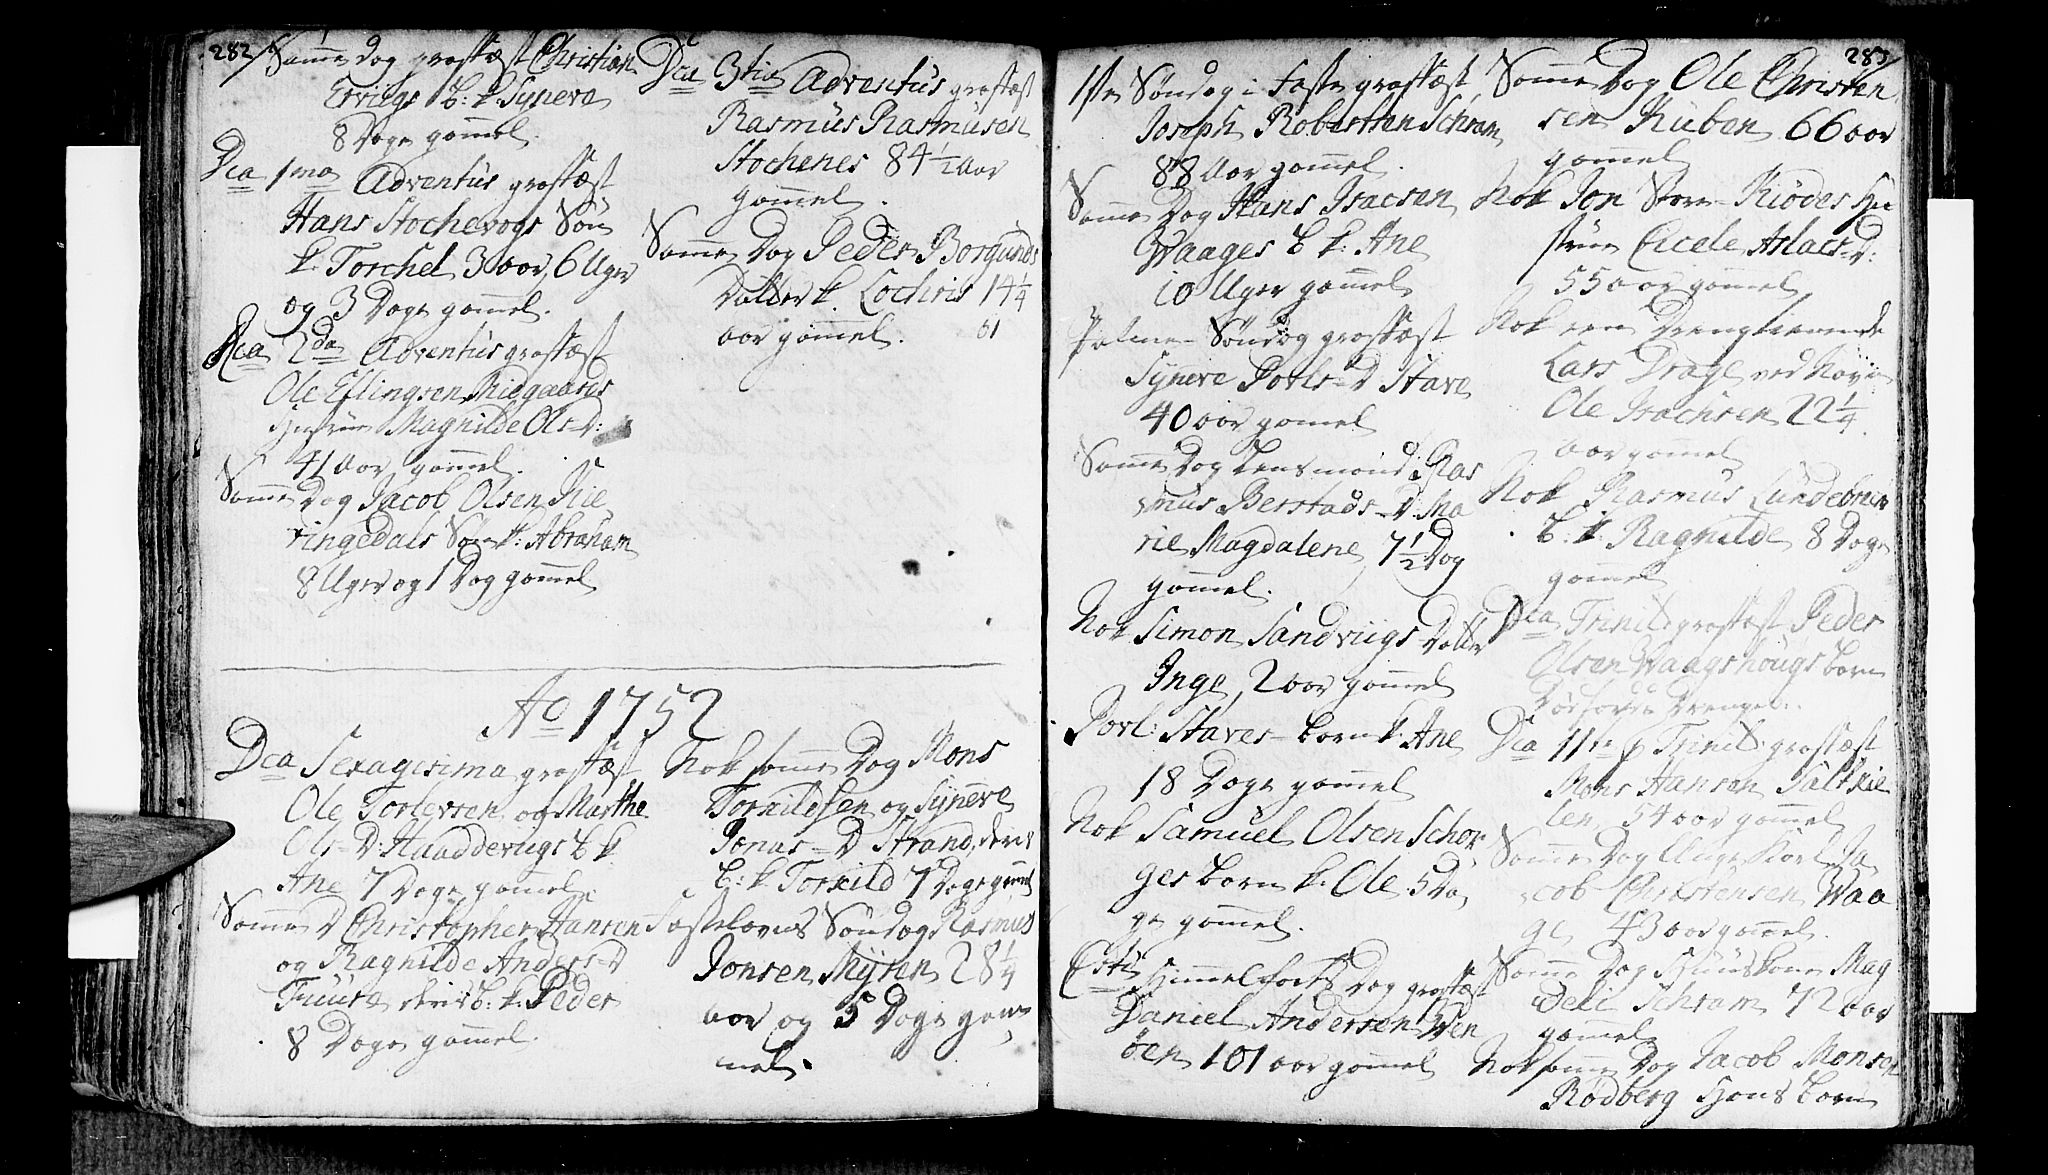 282
Samme Dag graffæst Christian
Erviigs b: k. Syneva
8 Dage gammel.
Dca 1ma Adventus graffæst
Hans Stochevogs Søn
k. Torchel 3 aar, 6 Uger
og 3 Dage gammel.
Dca 2da Adventus graffæst
Ole Ellingsen Riegaards
Hustrue Magnilde Ols-D:
41 Aar gammel.
Samme Dag Jacob Olsen Rie
ringedals Søn k: Abraham
8 Uger og 1 Dag gammel
Dca 3tia Adventus graffæst
Rasmus Rasmusen
Stochenes 84 1/2 Aar
gammel.
Samme Dag Peder Borgunds
Datter k. Lochris 14 1/4
aar gammel.
61
Ao 1752
Dca Sexagesima graffæst
Ole Torlevsen og Marthe
Ols-D: Haaddevigs b k.
Ane 7 Dage gammel.
Samme D Christopher Hansen
og Ragnilde Anders-D
Tuura deris b: k: Peder
8 Dage gammel.
Nok samme Dag Mons
Torkildsen og Synneve
Jonas-D Strand, deris
b: k Torkild 7 Dage gammel
Fastelavns Søndag Rasmus
Jonsen Myren 28 1/4
aar og 5 Dage gam
mel.
283
1ste Søndag i Faste graffæst
Joseph Robertsen Schram
88 Aar gammel.
Samme Dag Hans Isacsen
Waages b k: Ane
10 Uger gammel
Palme-Søndag graffæst
Syneve Povls-D Stave
40 aar gammel
Samme Dag Lensmand Ras
mus Berstads-D: Ma
rie Magdalene 7 1/2 Dag
gammel.
Nok Simon Sandviigs Datter
Inge, 2 aar gammel
Povl: Staves-barn k. Ane
18 Dage gammel
Nok Samuel Olsen Schor
ges barn k. Ole 5 Da
ge gammel.
Festo Himmelfarts Dag graffæst
Daniel Andersen Wen
øen 101 aar gammel
Samme Dag Ole Christen
sen Kuben 66 aar
gammel
Nok Jon Store-Riødes Hu
strue Cicele Aslacs-D:
55 aar gammel
Nok een Dreng tienende
Lars Drage ved Navn
Ole Isachsen 22 1/4
aar gammel
Nok Rasmus Lundebrier
b. k. Ragnilde 8 Dage
gammel
Dca Trinit graffæst Peder
Olsen Waagshougs barn
Dødfødde Drengeb.
Dca 11te p Trinit: graffæst
Mons Hansen Saltkie
len 54 aar gammel
Samme Dag Unge Karl Ja
cob Christensen Waa
ge 43 aar gammel.
Samme Dag Huuskone Mag
deli Schram 72 aar
gammel
Nok samme Dag Jacob Monsen
Rødberg Hans barn